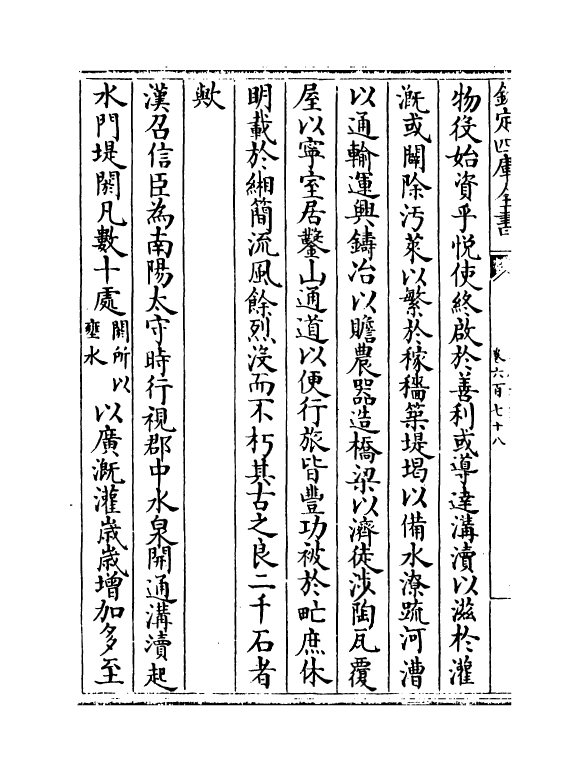 欽定四庫全書
卷六百七十八
物役始資乎悅使終啟於善利或導達溝瀆以滋於灌
溉或闢除汚萊以繁於稼穡築堤堨以備水潦疏河漕
以通輸運興鑄冶以贍農器造橋梁以濟徒涉陶瓦覆
屋以寧室居鑿山通道以便行旅皆豐功被於甿庶休
明載於緗簡流風餘烈沒而不朽其古之良二千石者
歟
漢召信臣為南陽太守時行視郡中水泉開通溝瀆起
水門堤閼凡數十處閼所以壅水以廣溉灌歲歲增加多至